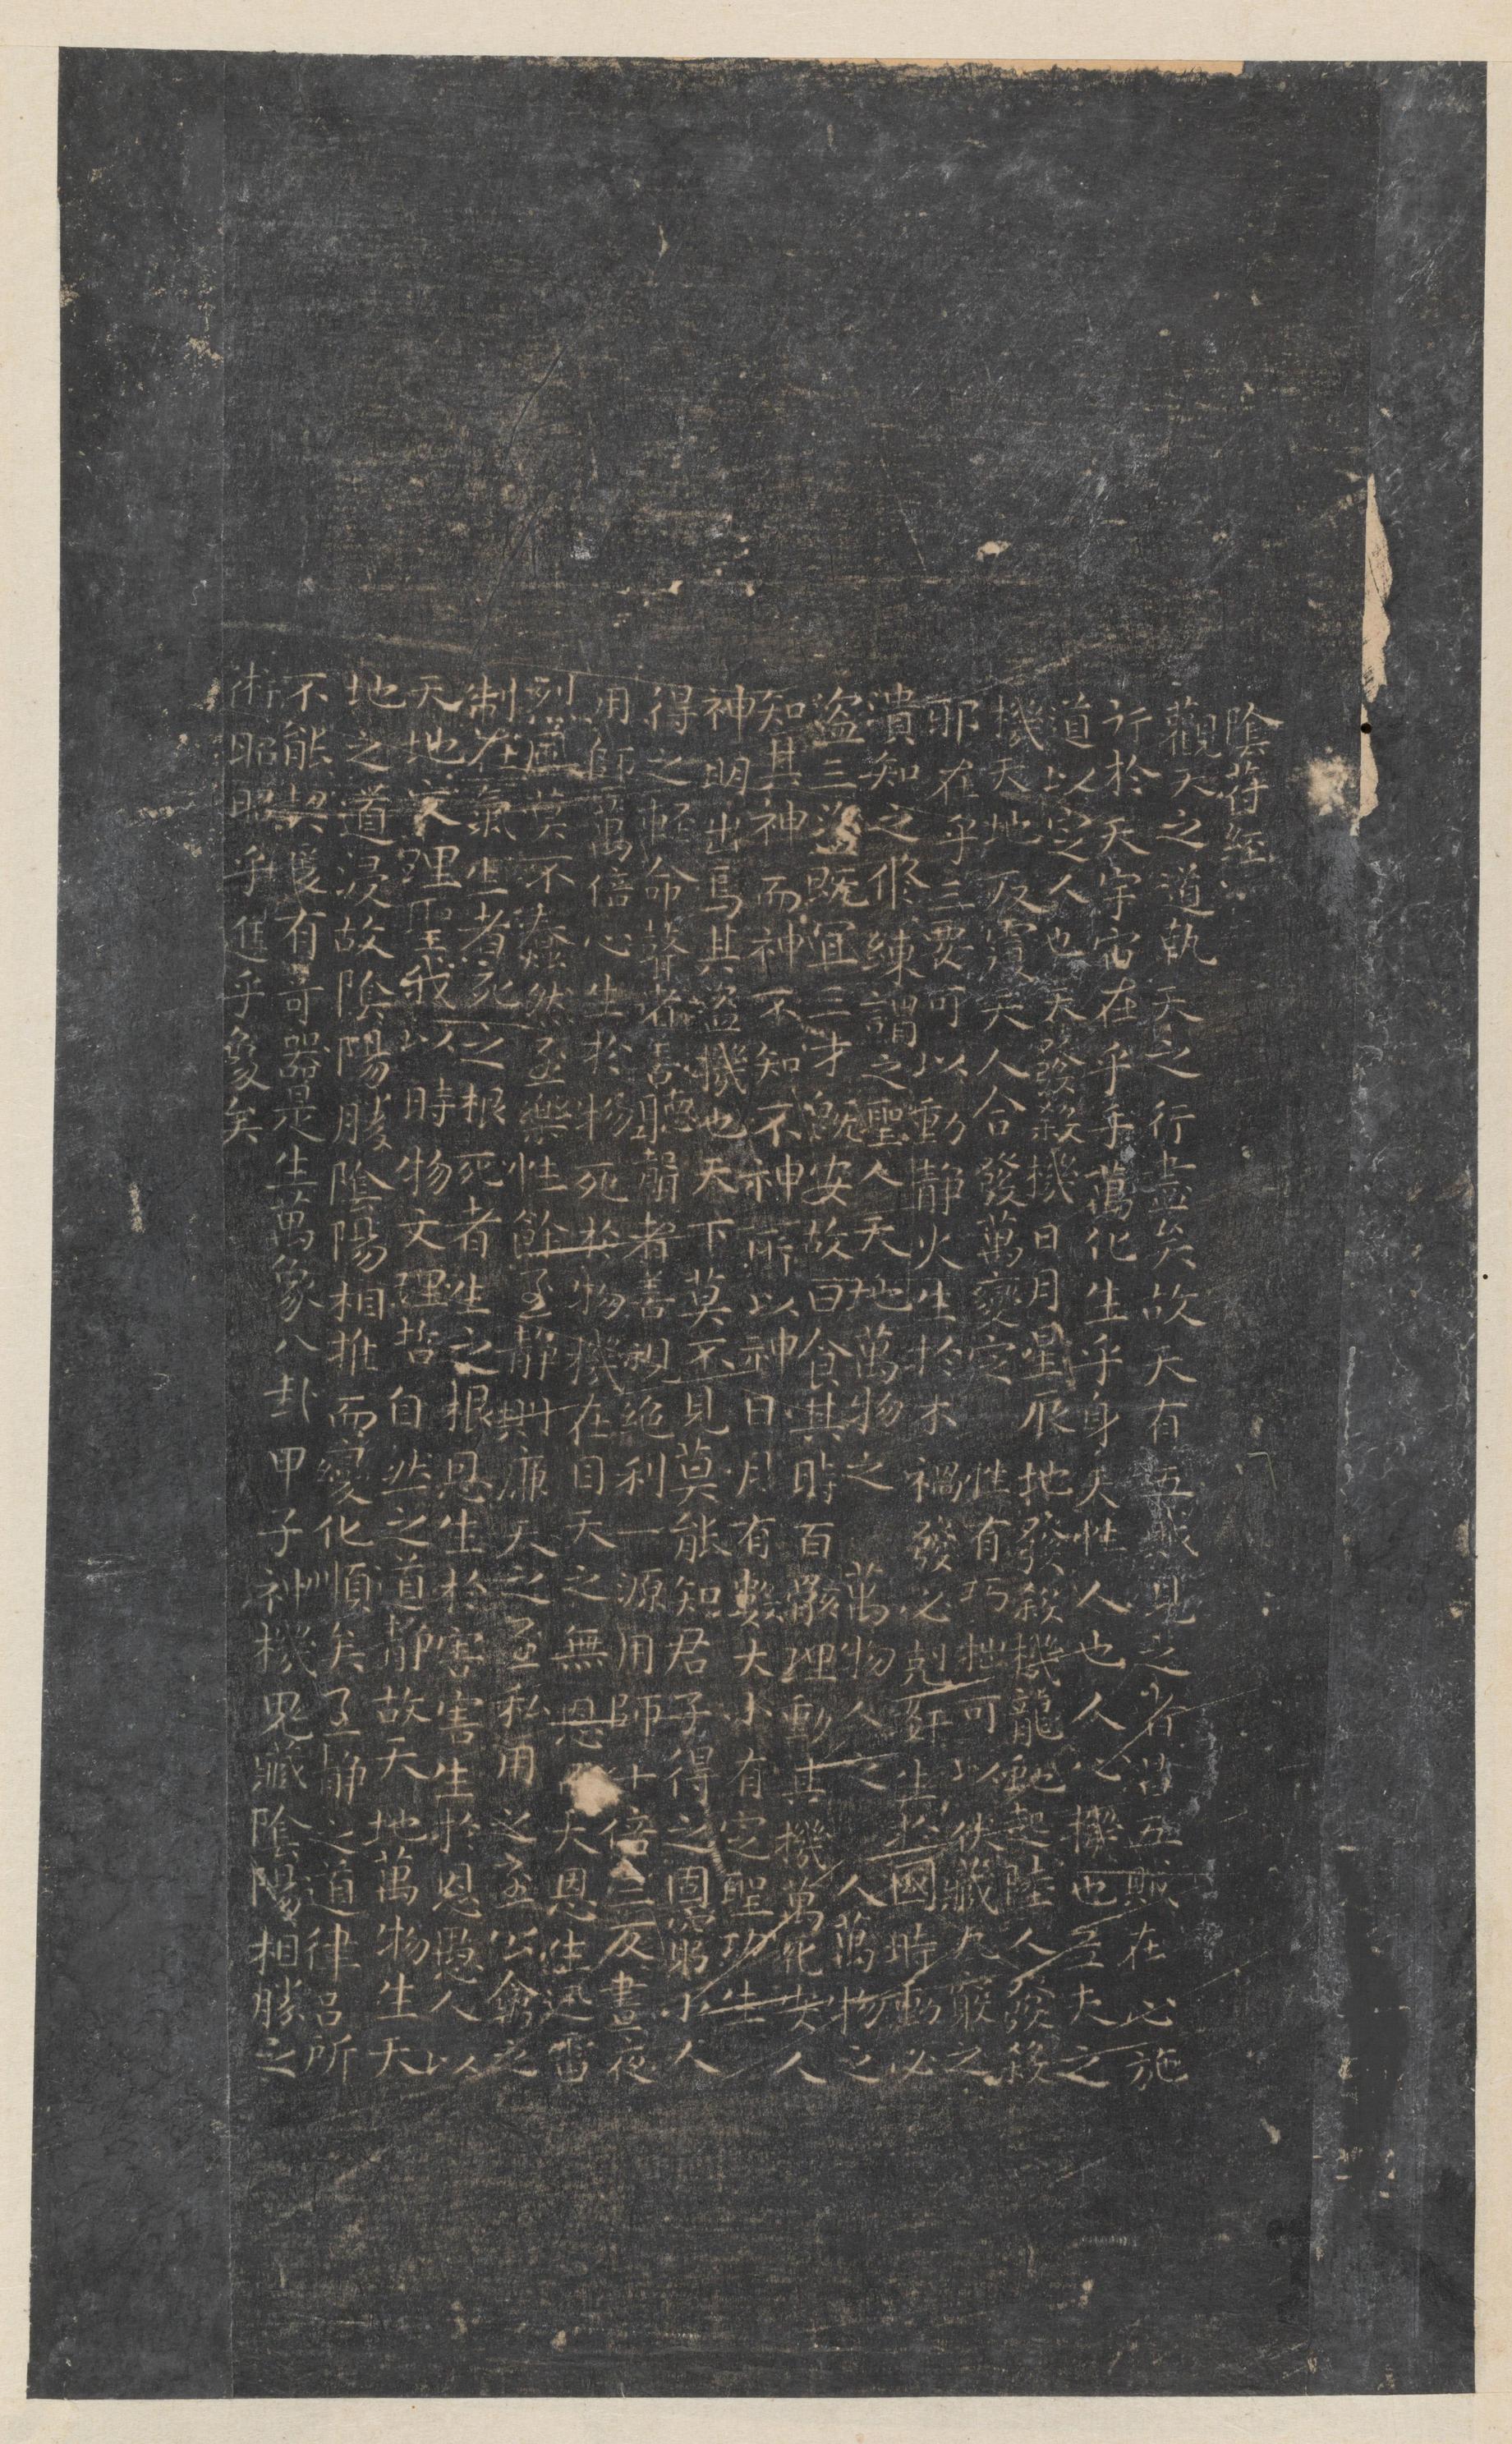 陰苻經
觀天之道執天之行盡矣故天有五賊見之者昌五賊在心施
行於天宇宙在乎手萬化生乎身天性人也人心機也立天之
道以定人也天發殺機日月星辰地發殺機龍虵起陸人發殺
機天地反覆天人合發萬變定性有巧拙可以伏藏九竅之
邪在乎三要可以動靜火生於木禍發必剋姧生於國時動必
潰知之修練謂之聖人天地萬物之萬物人之人萬物之
盗三盗既宜三才既安故曰食其時百骸理動其機萬化安人
知其神而神不知不神所以神日月有數大小有定聖功生
神明出焉其盗機也天下莫不見莫能知君子得之固窮小人
得之輕命瞽者善聽聾者善視絶利一源用師十倍三反晝夜
用師萬倍心生於物死於物機在目天之無恩大恩生迅雷
烈風莫不蠢然至樂性餘至靜則廉天之至私用之至公禽之
制在氣生者死之根死者生之根恩生於害害生於恩愚人以
天地文理聖我以時物文理哲自然之道靜故天地萬物生天
地之道浸故陰陽勝陰陽相推而變化順矣至靜之道律呂所
不能契爰有奇器是生萬象八卦甲子神機鬼藏陰陽相勝之
術昭昭乎進乎象矣